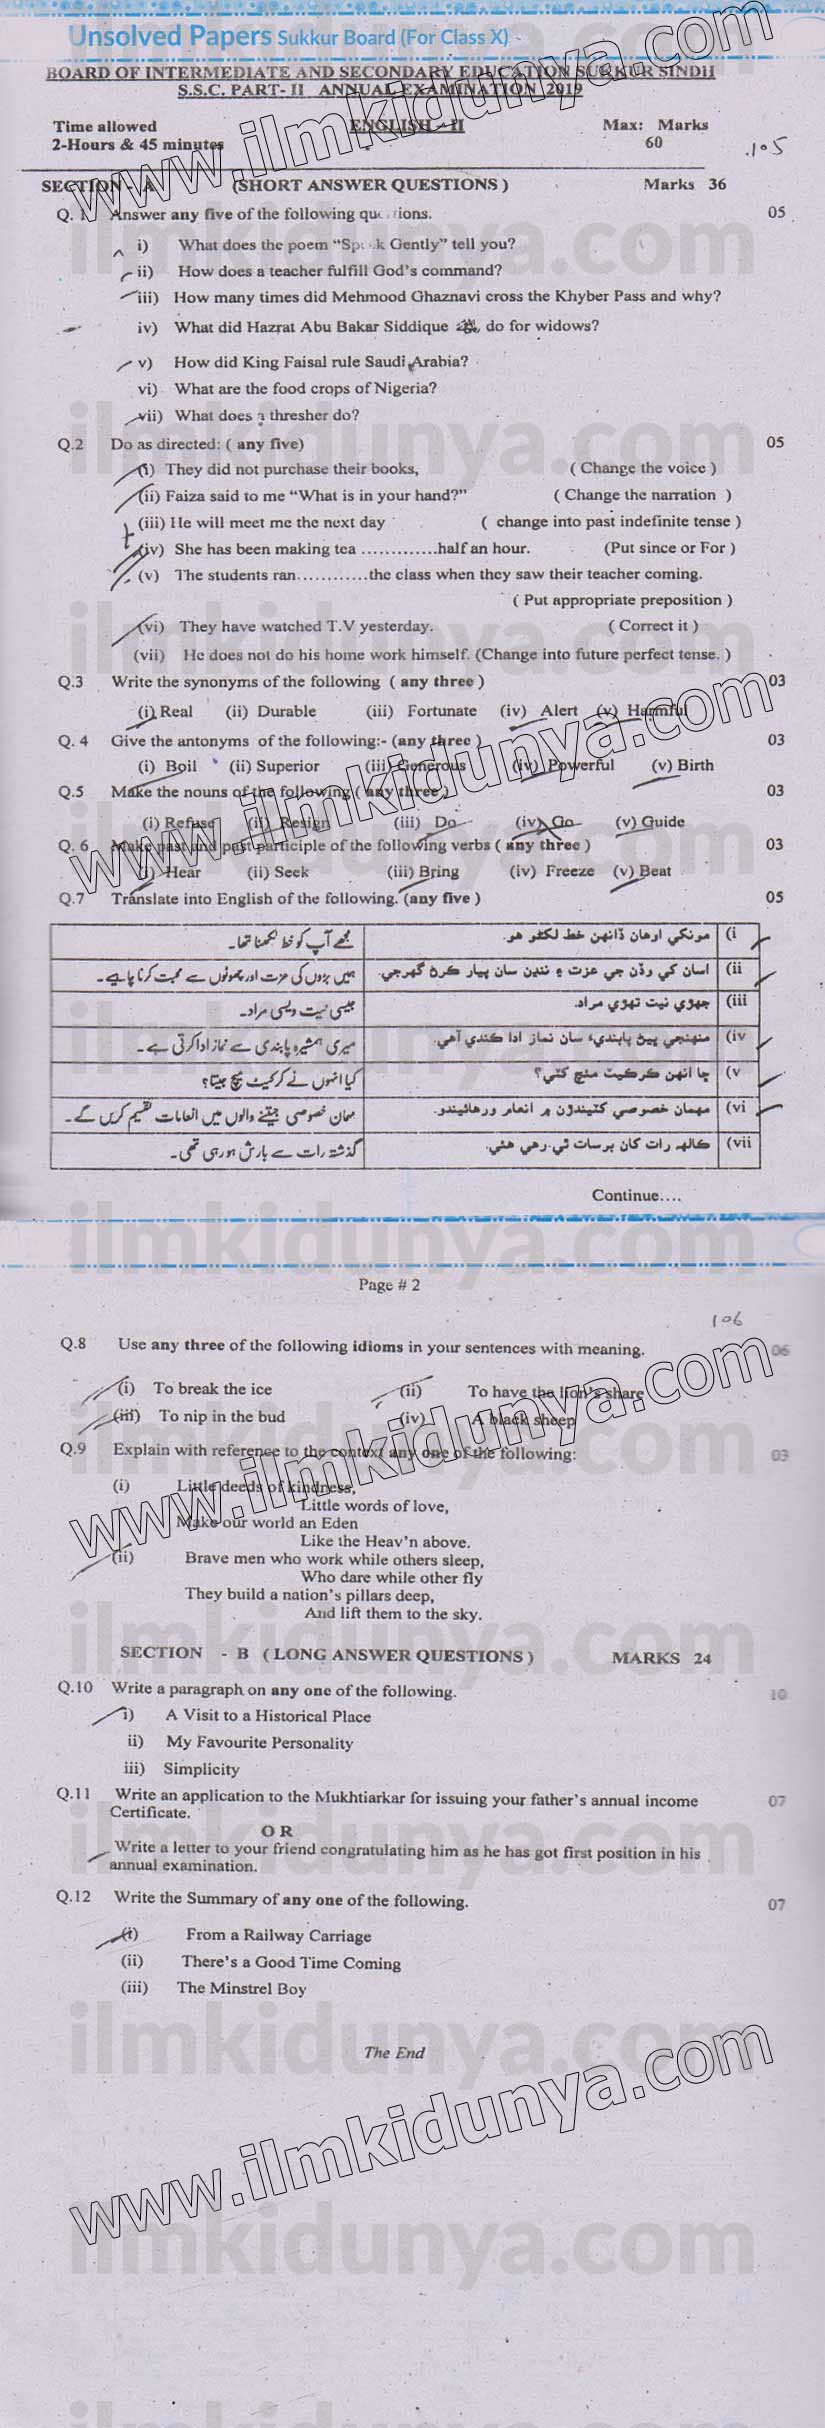 Unsolved Papers Sukkur Board (For Class X)
BOARD OF INTERMEDIATE AND SECONDARY EDUCATION SUKKUR SINDH
S.S.C. PART- II ANNUAL EXAMINATION 2019
Time allowed ENGLISH - II Max: Marks
2-Hours & 45 minutes 60
.105
SECTION - A (SHORT ANSWER QUESTIONS) Marks 36
Q. 1 Answer any five of the following questions. 05
i) What does the poem “Speak Gently” tell you?
ii) How does a teacher fulfill God’s command?
iii) How many times did Mehmood Ghaznavi cross the Khyber Pass and why?
iv) What did Hazrat Abu Bakar Siddique do for widows?
v) How did King Faisal rule Saudi Arabia?
vi) What are the food crops of Nigeria?
vii) What does a thresher do?
Q.2 Do as directed: ( any five) 05
(i) They did not purchase their books, ( Change the voice )
(ii) Faiza said to me “What is in your hand?” ( Change the narration )
(iii) He will meet me the next day ( change into past indefinite tense )
(iv) She has been making tea .............half an hour. (Put since or For )
(v) The students ran............the class when they saw their teacher coming.
( Put appropriate preposition )
(vi) They have watched T.V yesterday. ( Correct it )
(vii) He does not do his home work himself. (Change into future perfect tense. )
Q.3 Write the synonyms of the following ( any three ) 03
(i) Real (ii) Durable (iii) Fortunate (iv) Alert (v) Harmful
Q. 4 Give the antonyms of the following:- (any three ) 03
(i) Boil (ii) Superior (iii) Generous (iv) Powerful (v) Birth
Q.5 Make the nouns of the following ( any three ) 03
(i) Refuse (ii) Resign (iii) Do (iv) Go (v) Guide
Q. 6 Make past and past participle of the following verbs ( any three ) 03
(i) Hear (ii) Seek (iii) Bring (iv) Freeze (v) Beat
Q.7 Translate into English of the following. (any five ) 05
(i مونکي اوهان ڏانهن خط لکڻو هو. مجھے آپ کو خط لکھنا تھا۔
(ii اسان کي وڏن جي عزت ۽ ننڍن سان پيار ڪرڻ گهرجي. ہمیں بڑوں کی عزت اور چھوٹوں سے محبت کرنا چاہیے۔
(iii جهڙي نيت تهڙي مراد. جیسی نیت ویسی مراد۔
(iv منهنجي ڀيڻ پابنديءَ سان نماز ادا ڪندي آهي. میری ہمشیرہ پابندی سے نماز ادا کرتی ہے۔
(v ڇا انهن ڪرڪيٽ مئچ کٽي؟ کیا انہوں نے کرکیٹ میچ جیتا؟
(vi مهمان خصوصي کٽيندڙن ۾ انعام ورهائيندو. مہمان خصوصی جیتنے والوں میں انعامات تقسیم کریں گے۔
(vii ڪالهه رات کان برسات ٿي رهي هئي. گذشتہ رات سے بارش ہو رہی تھی۔
Continue....
Page # 2
106
Q.8 Use any three of the following idioms in your sentences with meaning. 06
(i) To break the ice (ii) To have the lion’s share
(iii) To nip in the bud (iv) A black sheep
Q.9 Explain with reference to the context any one of the following: 03
(i) Little deeds of kindness,
Little words of love,
Make our world an Eden
Like the Heav’n above.
(ii) Brave men who work while others sleep,
Who dare while other fly
They build a nation’s pillars deep,
And lift them to the sky.
SECTION - B ( LONG ANSWER QUESTIONS ) MARKS 24
Q.10 Write a paragraph on any one of the following. 10
i) A Visit to a Historical Place
ii) My Favourite Personality
iii) Simplicity
Q.11 Write an application to the Mukhtiarkar for issuing your father’s annual income 07
Certificate.
O R
Write a letter to your friend congratulating him as he has got first position in his
annual examination.
Q.12 Write the Summary of any one of the following. 07
(i) From a Railway Carriage
(ii) There’s a Good Time Coming
(iii) The Minstrel Boy
The End
www.ilmkidunya.com
ilmkidunya.com